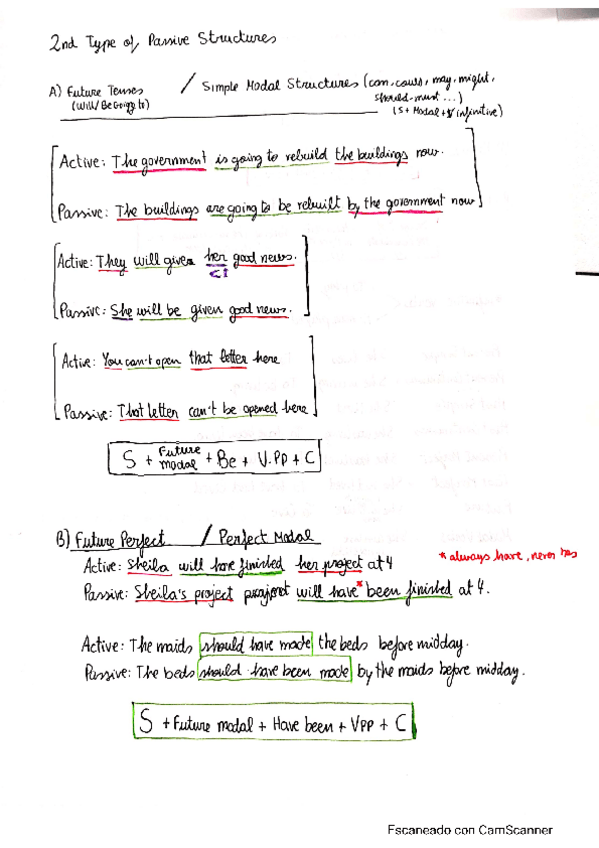 2nd Type of Passive Structures
A) Future Tenses / Simple Modal Structures (can, could, may, might,
(Will/Be Going to) should, must ...)
(S + Modal + infinitive)
Active: The government is going to rebuild the buildings now.
Passive: The buildings are going to be rebuilt by the government now
Active: They will given her good news.
CI
Passive: She will be given good news.
Active: You can't open that letter here
Passive: That letter can't be opened here
S + Future modal + Be + V.PP + C
B) Future Perfect / Perfect Modal
Active: Sheila will have finished her project at 4
* always have, never has
Passive: Sheila's project will have* been finished at 4.
Active: The maids should have made the beds before midday.
Passive: The beds should have been made by the maids before midday.
S + Future modal + Have been + VPP + C
Escaneado con CamScanner